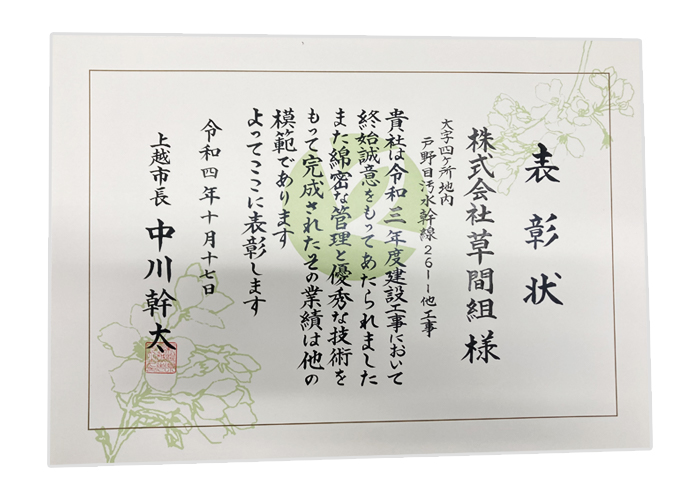 表彰状
株式会社草間組様
大字四ケ所地内
戸野目汚水幹線26ー1他工事
貴社は令和三年度建設工事において
終始誠意をもってあたられました
また綿密な管理と優秀な技術を
もって完成されたその業績は他の
模範であります
よってここに表彰します
令和四年十月十七日
上越市長 中川幹太